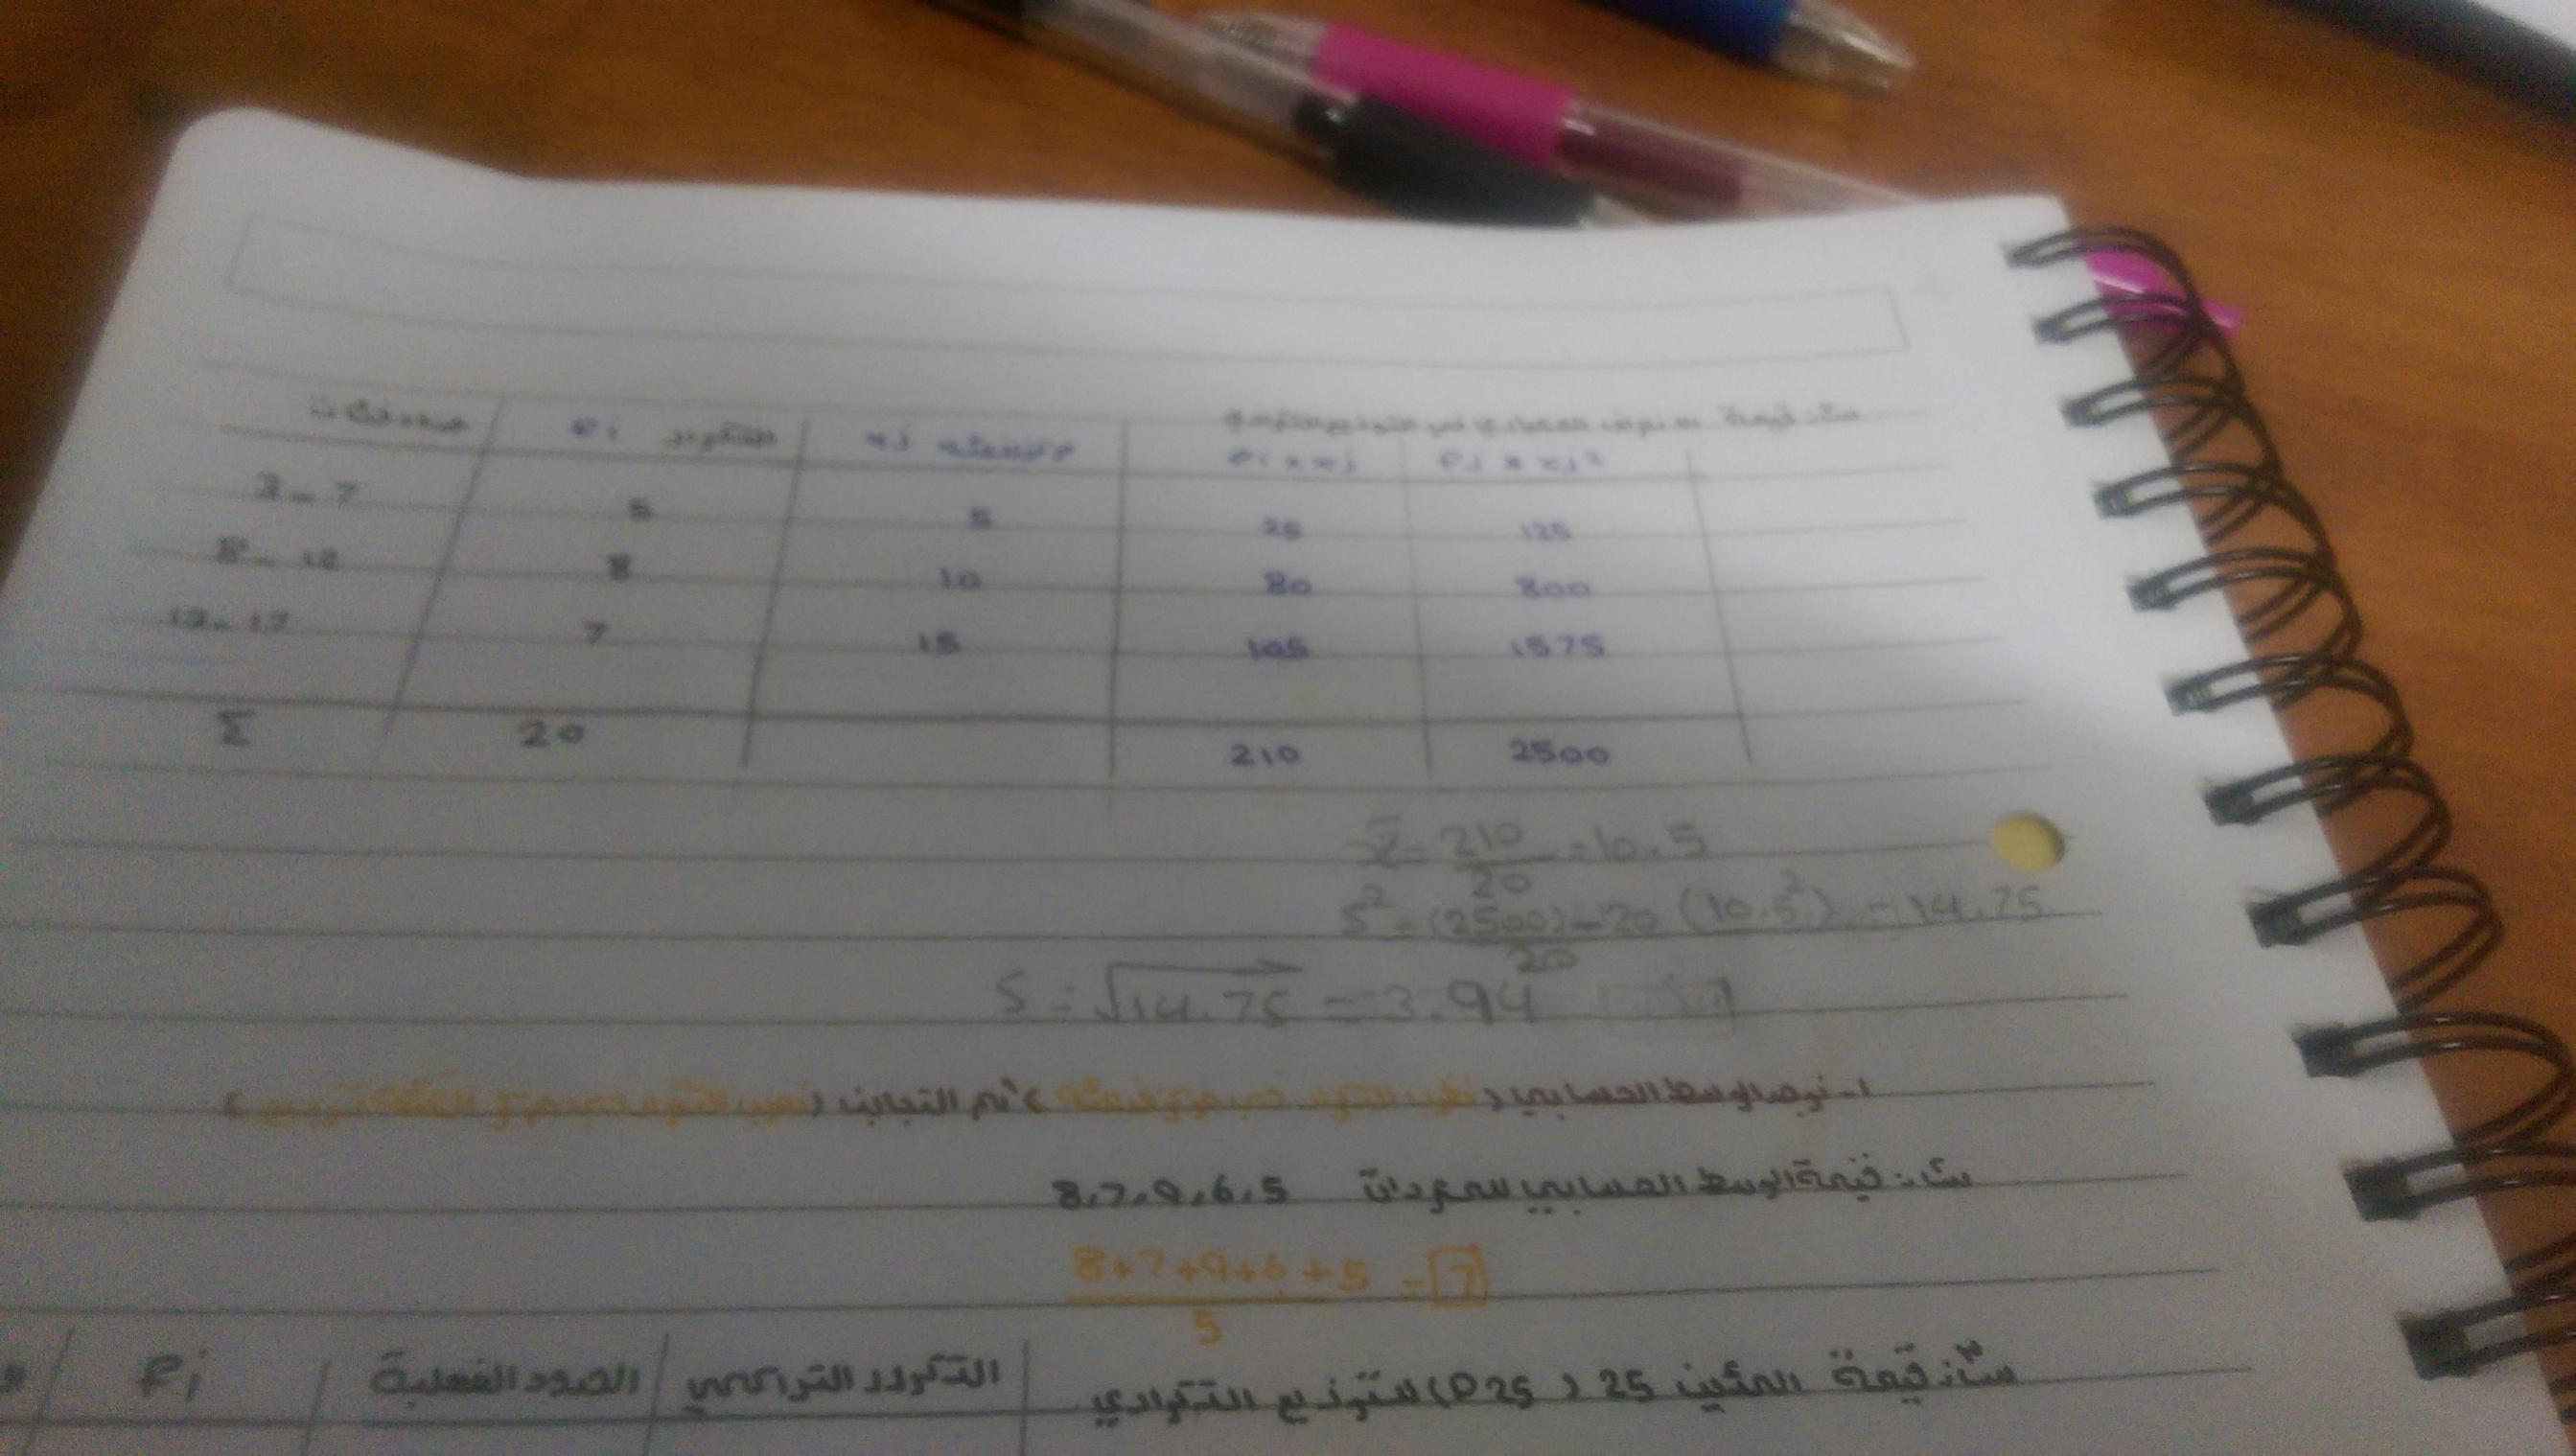 س: قيمة الانحراف المعياري في التوزيع التكراري
حدود فئات | التكرار fi | مركز الفئة xi | fi × xi | fi × xi²
3 - 7 | 5 | 5 | 25 | 125
8 - 12 | 8 | 10 | 80 | 800
13 - 17 | 7 | 15 | 105 | 1575
Σ | 20 | 210 | 2500
x̄ = 210/20 = 10.5
S² = (2500) - 20 (10.5²) / 20 = 14.75
S = √14.75 = 3.94
1- نوجد الوسط الحسابي (نضرب التكرار في مركز الفئة) ثم التباين (نضرب التكرار في مركز الفئة تربيع)
س: قيمة الوسط الحسابي للمفردات 8,7,9,6,5
8+7+9+6+5 / 5 = 7
س: قيمة المئين 25 (P25) للتوزيع التكراري
التكرار التراكمي | الحدود الفعلية | fi